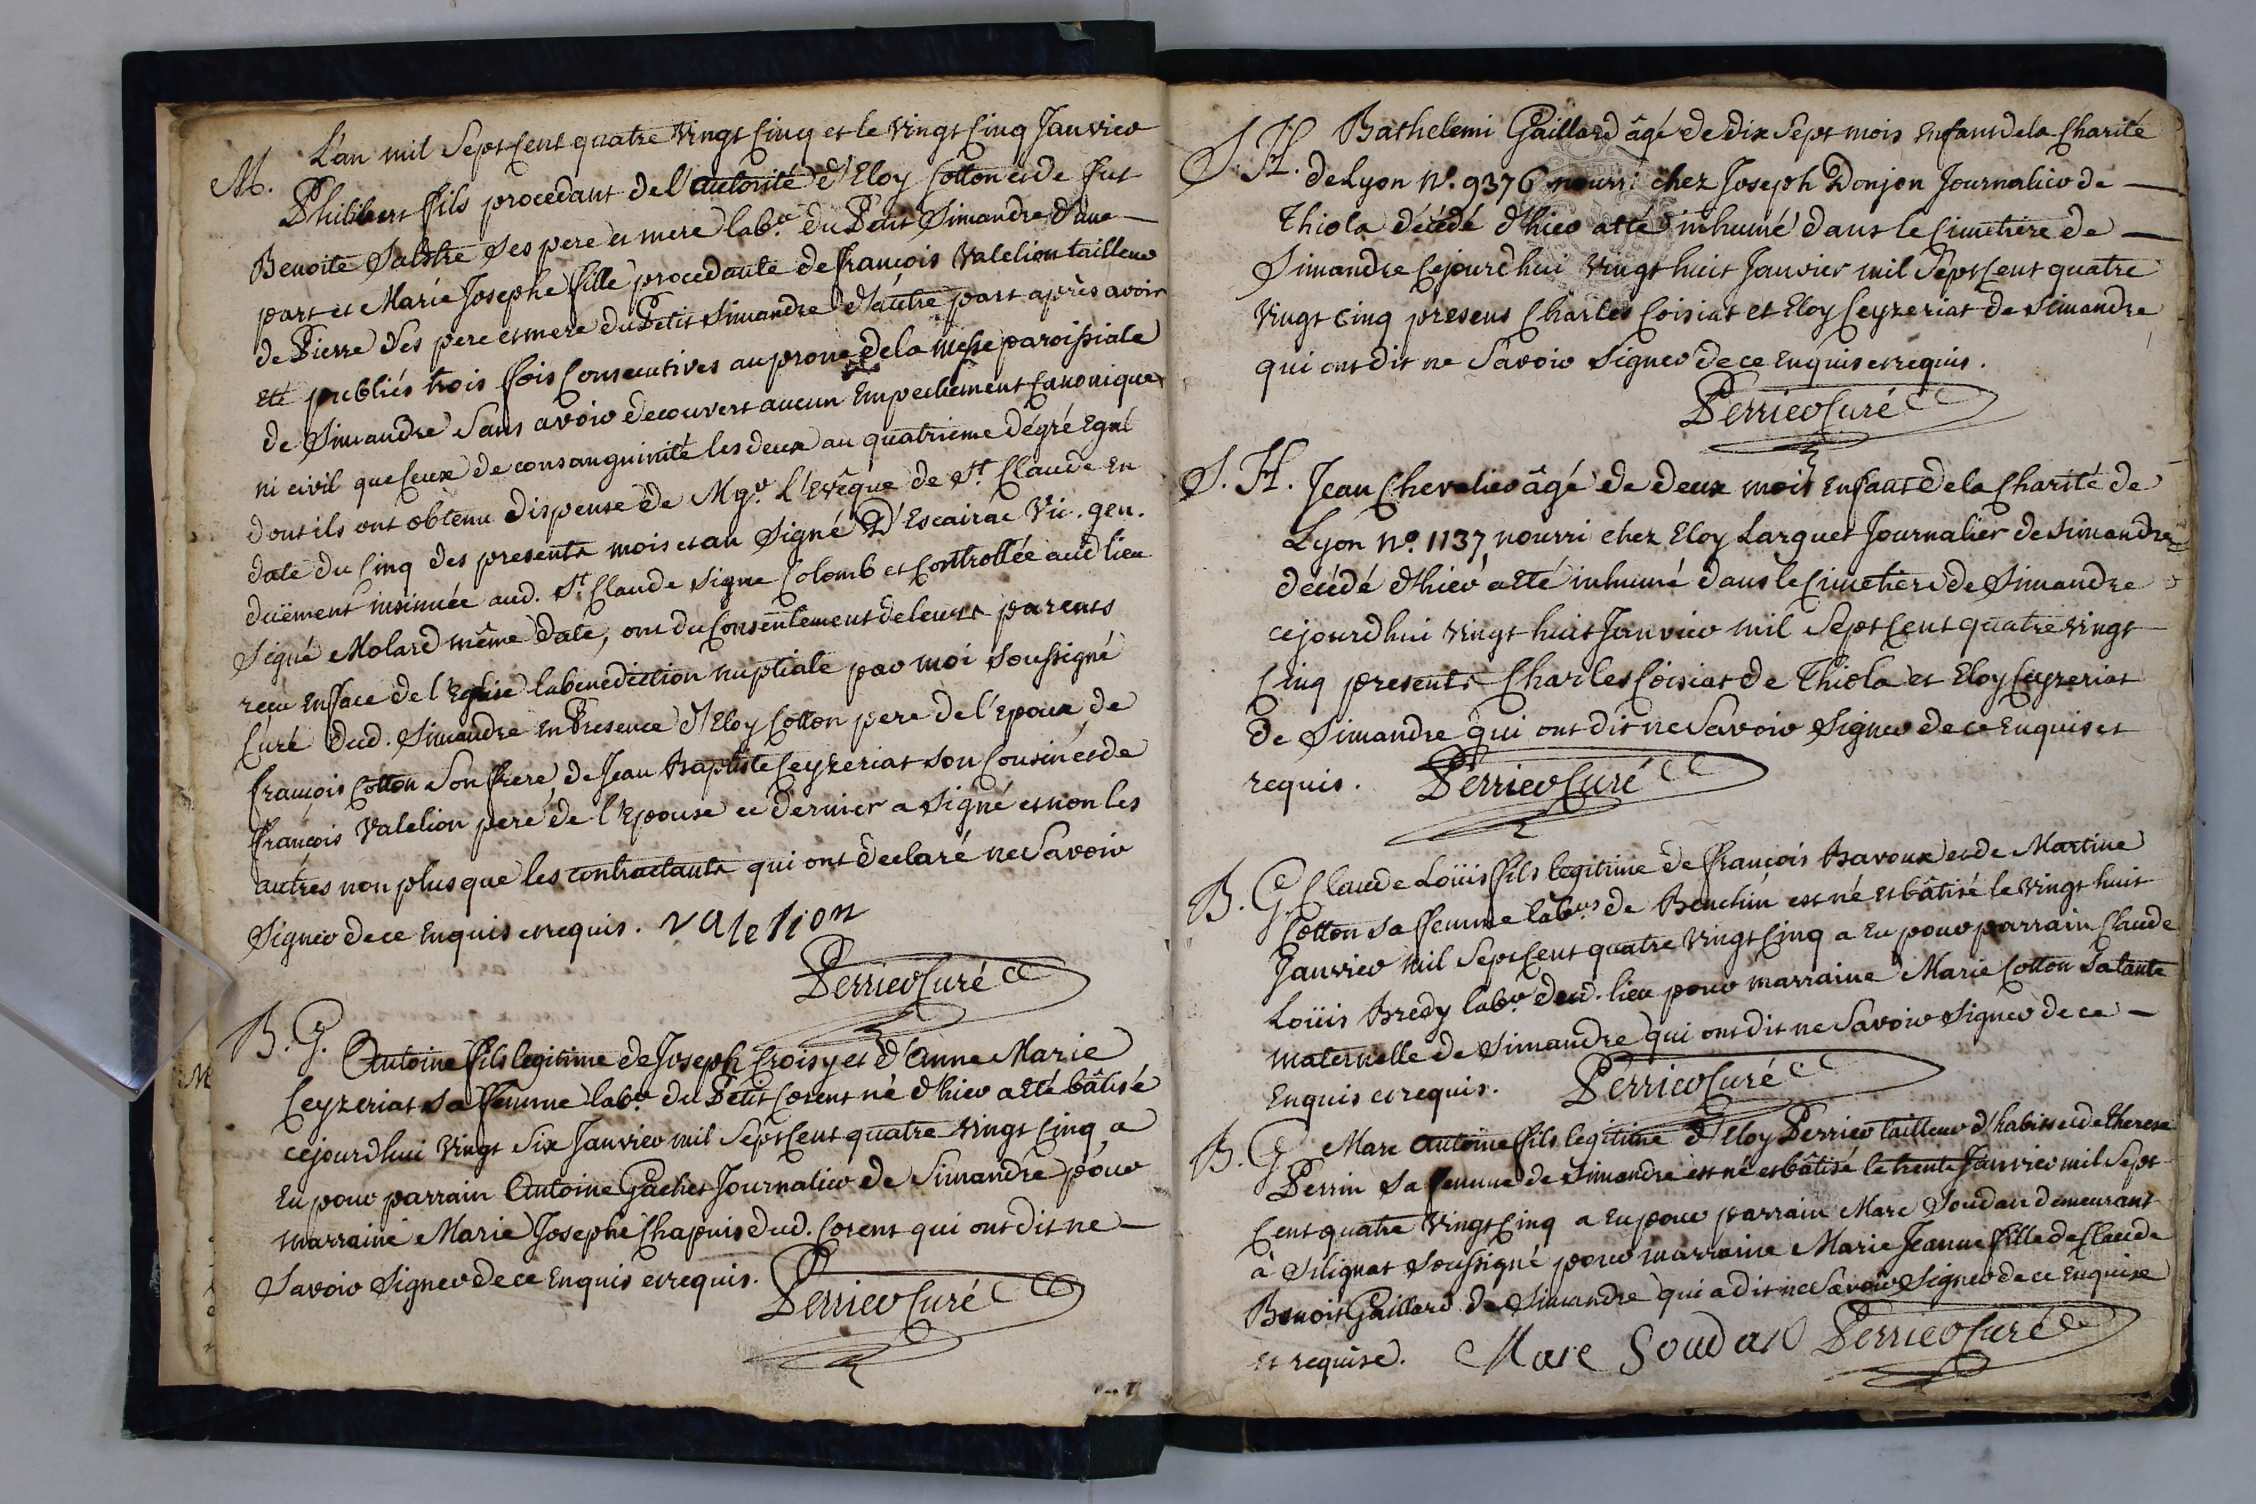 M. L'an mil Sept Cent quatre Vingt Cinq et le Vingt Cinq Janvier
Philibert fils procedant de l'autorité d'Eloy Cotton et de fut
Benoite Salstre Ses pere et mere lab.r du Petit Simandre d'une
part et Marie Josephe fille procedante de françois Valelion tailleur
de Pierre Ses pere et mere du Petit Simandre d'autre part après avoir
eté publiés trois fois Consecutives au prone de la messe paroissiale
de Simandre Sans avoir decouvert aucun Empechement Canonique
ni civil que Ceux de consanguinité les deux au quatrieme dégré Egal
dont ils ont obtenu dispense de Mgr. l'Evêque de St. Claude En
date du Cinq des presents mois et an Signé D'Escairac Vic. gen.
duëment insinuée aud. St. Claude signe Colomb et Controllée aud lieu
Signé Molard même date, ont du Consentement de leurs parents
reçu En face de l'Eglise la benediction nuptiale par moi Soussigné
Curé dud. Simandre en Presence d'Eloy Cotton pere de l'epoux, de
françois Cotton Son frere, de Jean Baptiste Ceyzeriat son Cousin et de
françois Valelion pere de l'Epouse ce dernier a Signé et non les
autres non plus que les contractants qui ont declaré ne Savoir
Signer de ce Enquis et requis. valelion
Perrier Curé
B. G. Antoine fils legitime de Joseph Croisy et d'Anne Marie
Ceyzeriat Sa femme lab.r du Petit Corent né d'hier a Eté bâtisé
cejourdhui Vingt Six Janvier mil Sept Cent quatre Vingt Cinq a
Eu pour parrain Antoine Gachet Journalier de Simandre pour
marraine Marie Josephe Chapuis dud. Corent qui ont dit ne
Savoir Signer de ce Enquis et requis.
Perrier Curé
S. H. Bathelemi Gaillard âgé de dix Sept mois Enfant de la Charité
de Lyon N°. 9376 nourri chez Joseph Donjon Journalier de
Thiola décédé d'hier a eté inhumé dans le Cimetiere de
Simandre Cejourdhui Vingt huit Janvier mil Sept Cent quatre
Vingt Cinq présens Charles Coisiat et Eloy Ceyzeriat de Simandre
qui ont dit ne Savoir Signer de ce Enquis et requis.
Perrier Curé
S. H. Jean Chevalier âgé de deux mois Enfant de la Charité de
Lyon N°. 1137 nourri chez Eloy Larguet Journalier de Simandre
décédé d'hier a eté inhumé dans le Cimetiere de Simandre
cejourdhui Vingt huit Janvier mil Sept Cent quatre Vingt
Cinq presents Charles Coisiat de Thiola et Eloy Ceyzeriat
de Simandre qui ont dit ne Savoir Signer de ce Enquis et
requis. Perrier Curé
B. G. Claude Loüis fils legitime de françois Bavoux et de Martine
Cotton Sa femme lab.rs de Benchin est né et bâtisé le Vingt huit
Janvier mil Sept Cent quatre Vingt Cinq a Eu pour parrain Claude
Loüis Bredy lab.r dud. lieu pour marraine Marie Cotton Sa tante
maternelle de Simandre qui ont dit ne Savoir Signer de ce
Enquis et requis. Perrier Curé
B. G. Marc Antoine fils legitime d'Eloy Perrier tailleur d'habits et de Therese
Perrin Sa femme de Simandre est né et bâtisé le trente Janvier mil Sept
Cent quatre Vingt Cinq a Eu pour parrain Marc Soudan demeurant
à Silignat Soussigné pour marraine Marie Jeanne fille de Claude
Benoit Gaillard de Simandre qui a dit ne Savoir Signer de ce Enquise
et requise. Marc Soudan Perrier Curé